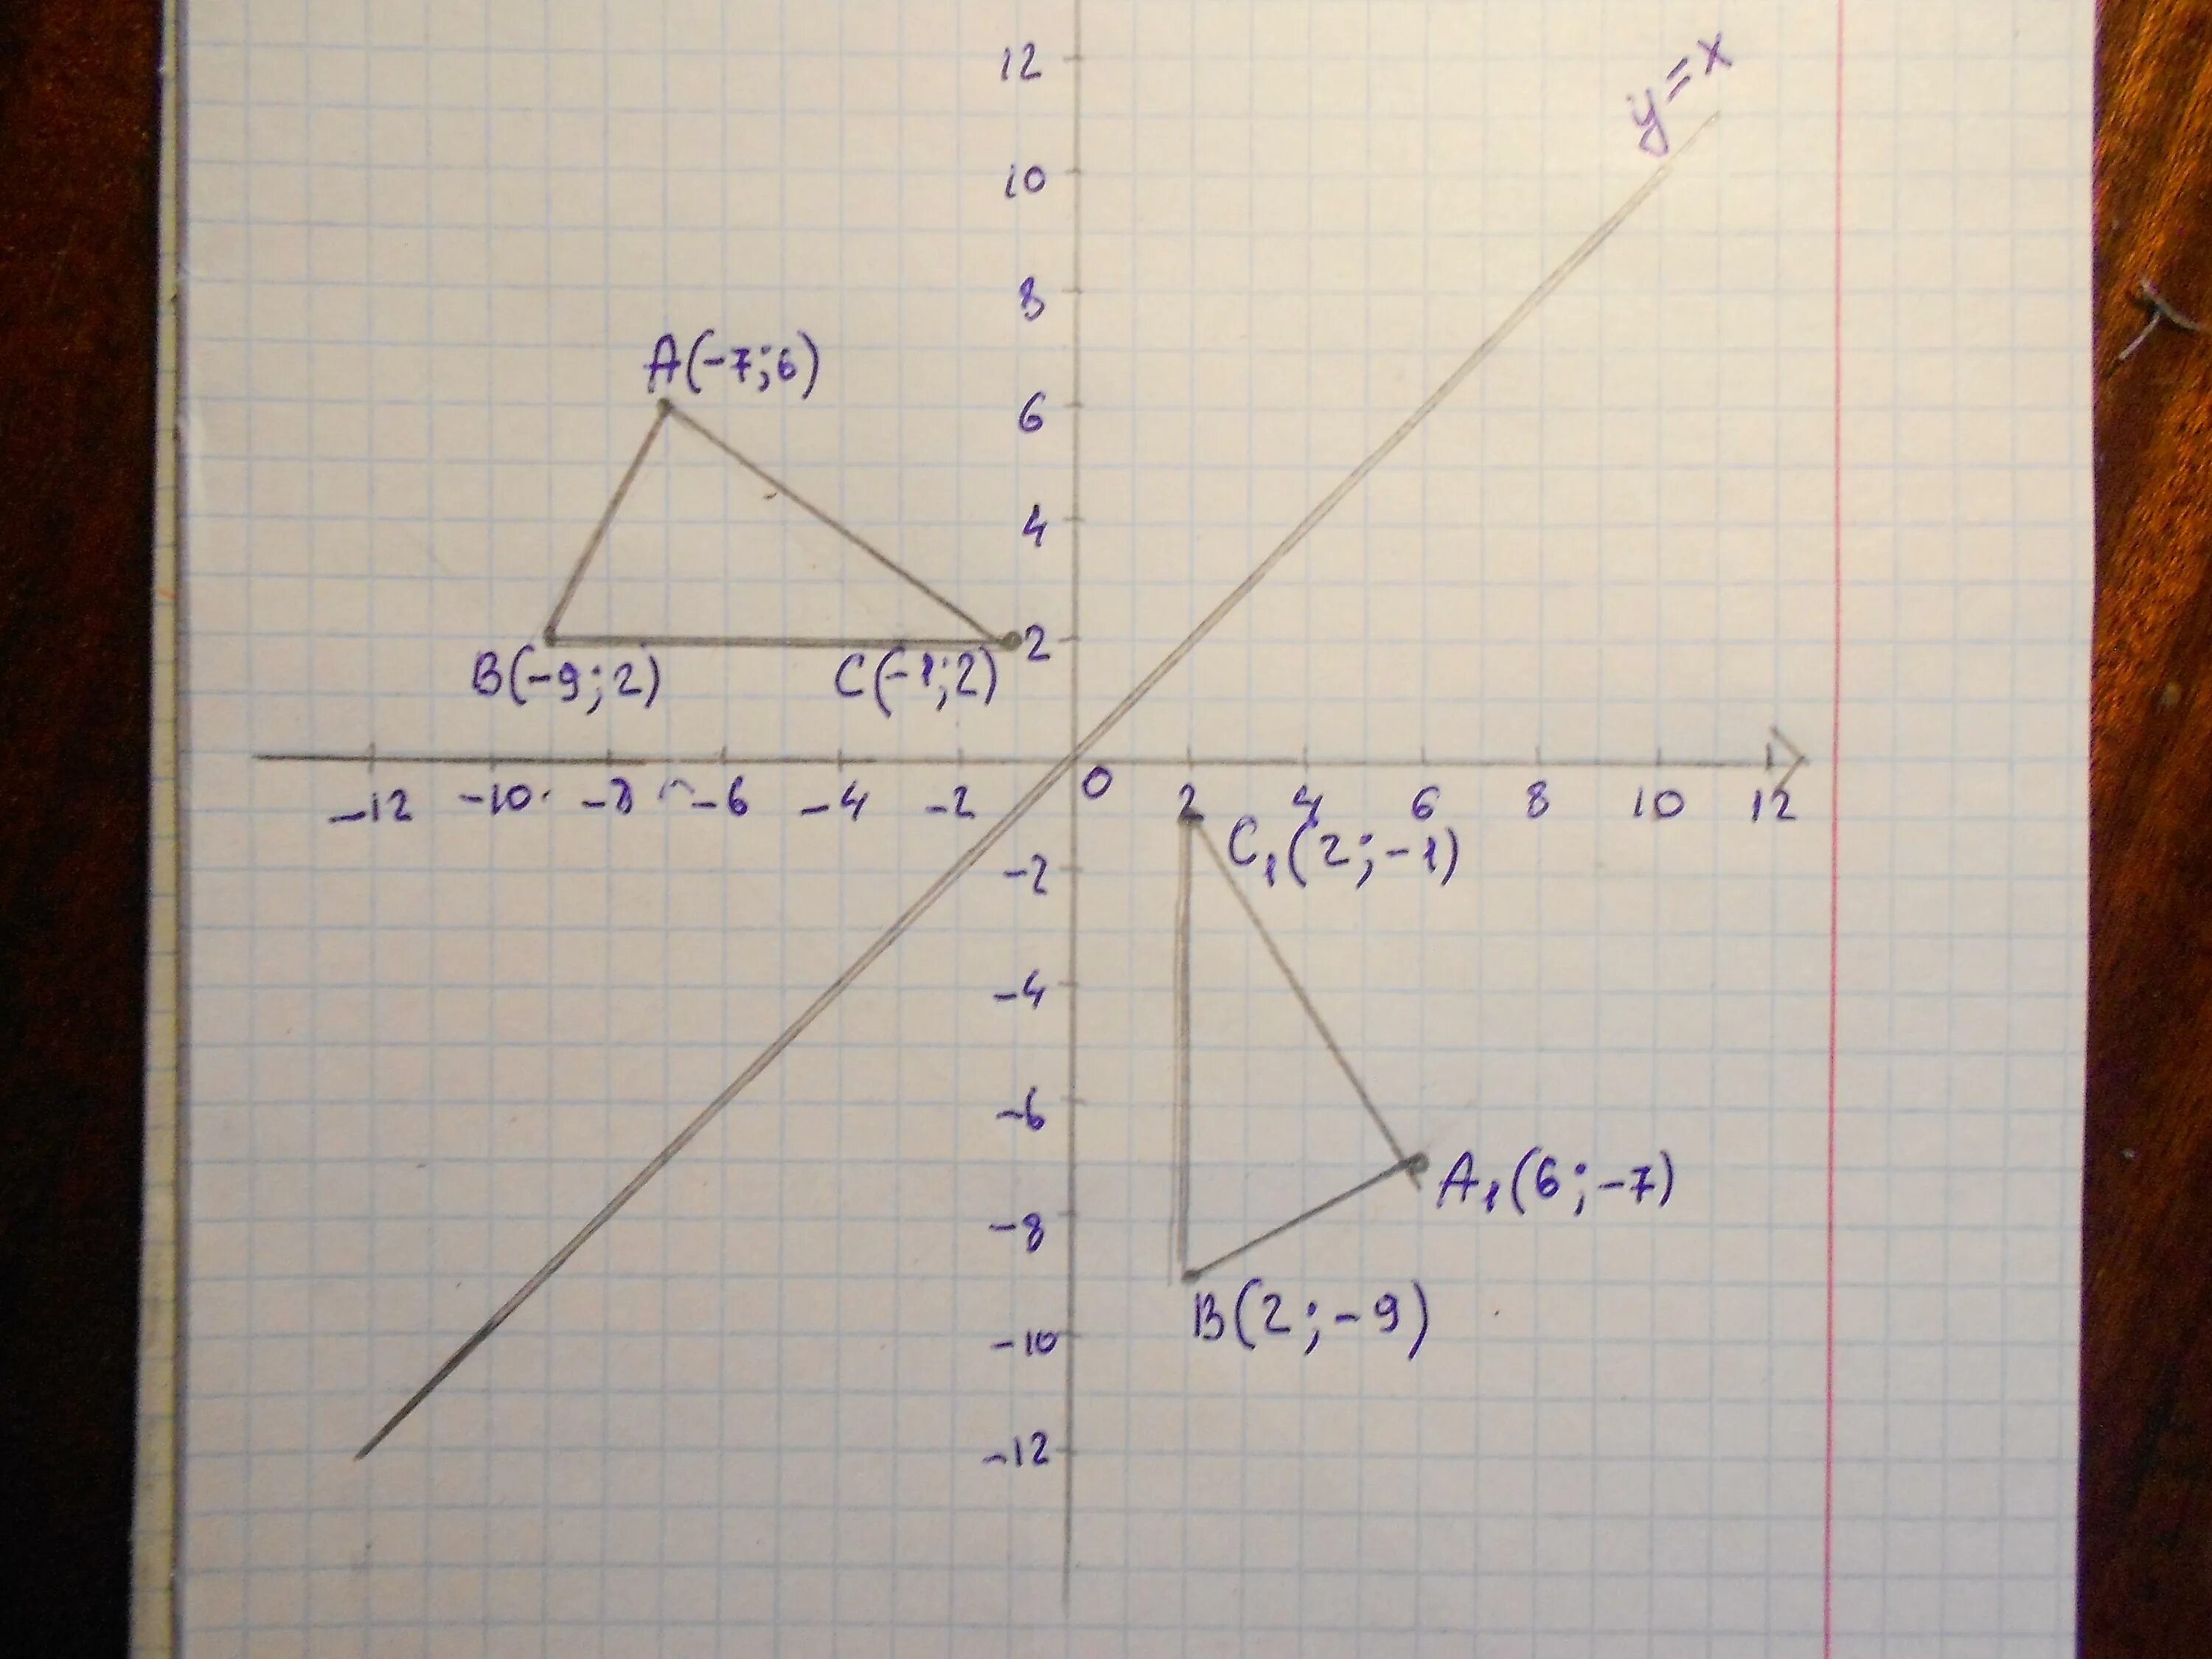 12
y=x
10
8
A(-7;6)
6
4
2
B(-9;2)
C(-1;2)
-12 -10 -8 -6 -4 -2 0 2 4 6 8 10 12
C₁(2;-1)
-2
-4
-6
A₁(6;-7)
-8
B(2;-9)
-10
-12